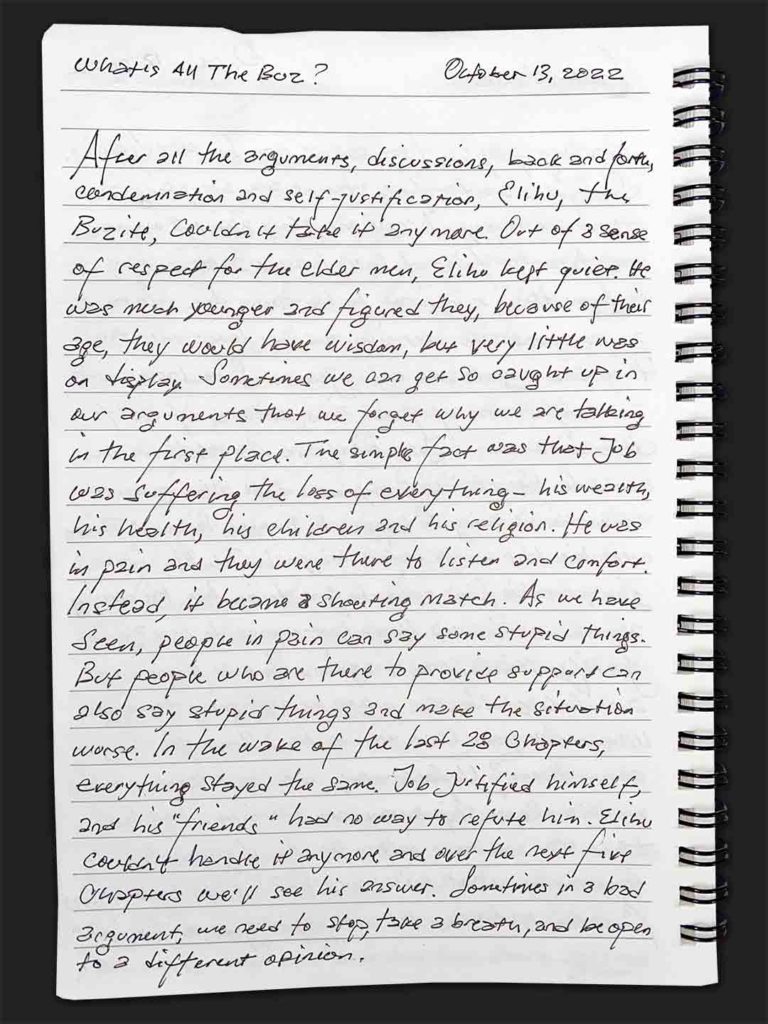 What's All The Buz? October 13, 2022
After all the arguments, discussions, back and forth,
condemnation and self-justification, Elihu, the
Buzite, couldn't take it anymore. Out of a sense
of respect for the elder men, Elihu kept quiet. He
was much younger and figured they, because of their
age, they would have wisdom, but very little was
on display. Sometimes we can get so caught up in
our arguments that we forget why we are talking
in the first place. The simple fact was that Job
was suffering the loss of everything - his wealth,
his health, his children and his religion. He was
in pain and they were there to listen and comfort.
Instead, it became a shouting match. As we have
seen, people in pain can say some stupid things.
But people who are there to provide support can
also say stupid things and make the situation
worse. In the wake of the last 28 Chapters,
everything stayed the same. Job Justified himself,
and his "friends" had no way to refute him. Elihu
couldn't handle it anymore and over the next five
Chapters we'll see his answer. Sometimes in a bad
argument, we need to stop, take a breath, and be open
to a different opinion.